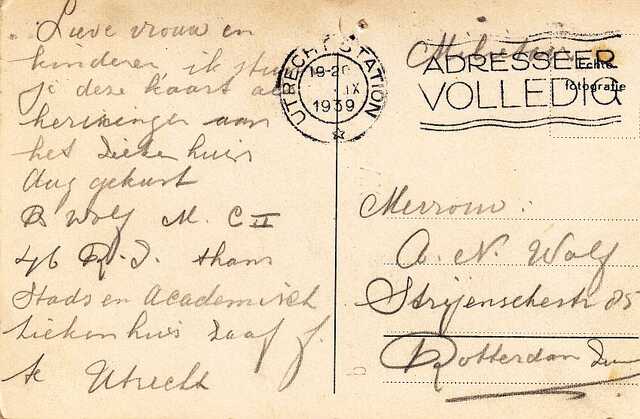 Lieve vrouw en
kinderen ik stuur
je deze kaart als
herinnering aan
het Zieken huis
dag gekust
B Wolf M. C II
46 R. I. thans
Stads en Academisch
Ziekenhuis Zaal
te Utrecht
UTRECHT STATION
1939
ADRESSEER
VOLLEDIG
Echte
fotografie
Mevrouw:
A. N. Wolf
Strijenschestr 85
Rotterdam Zuid